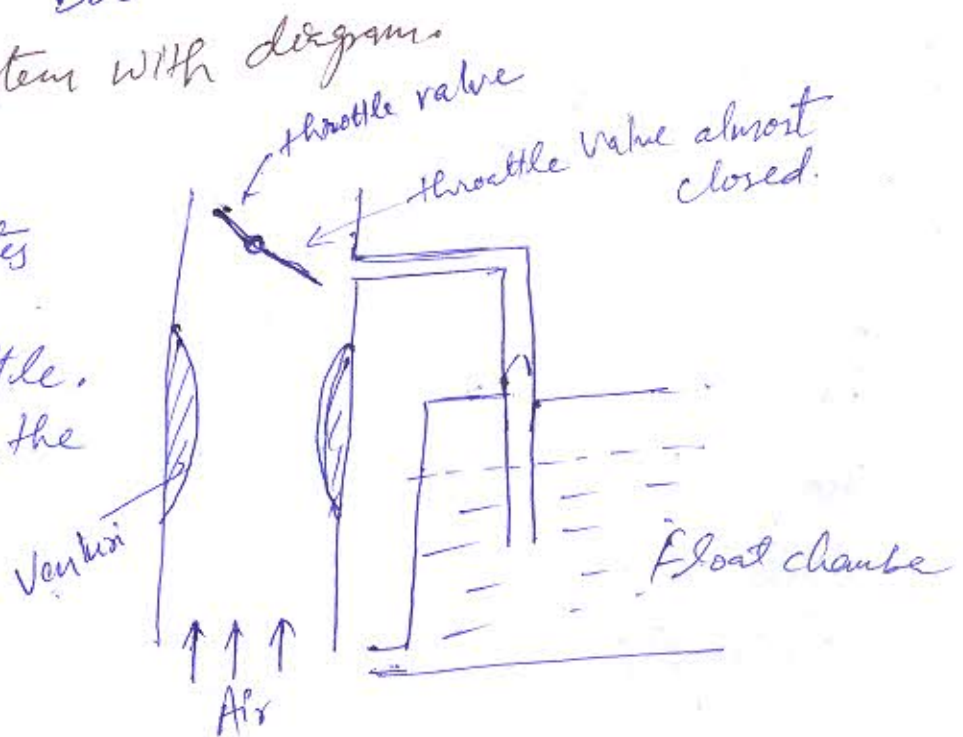 with diagram.
throttle valve
throattle valve almost
closed.
the
Venturi
Float chambe
Air